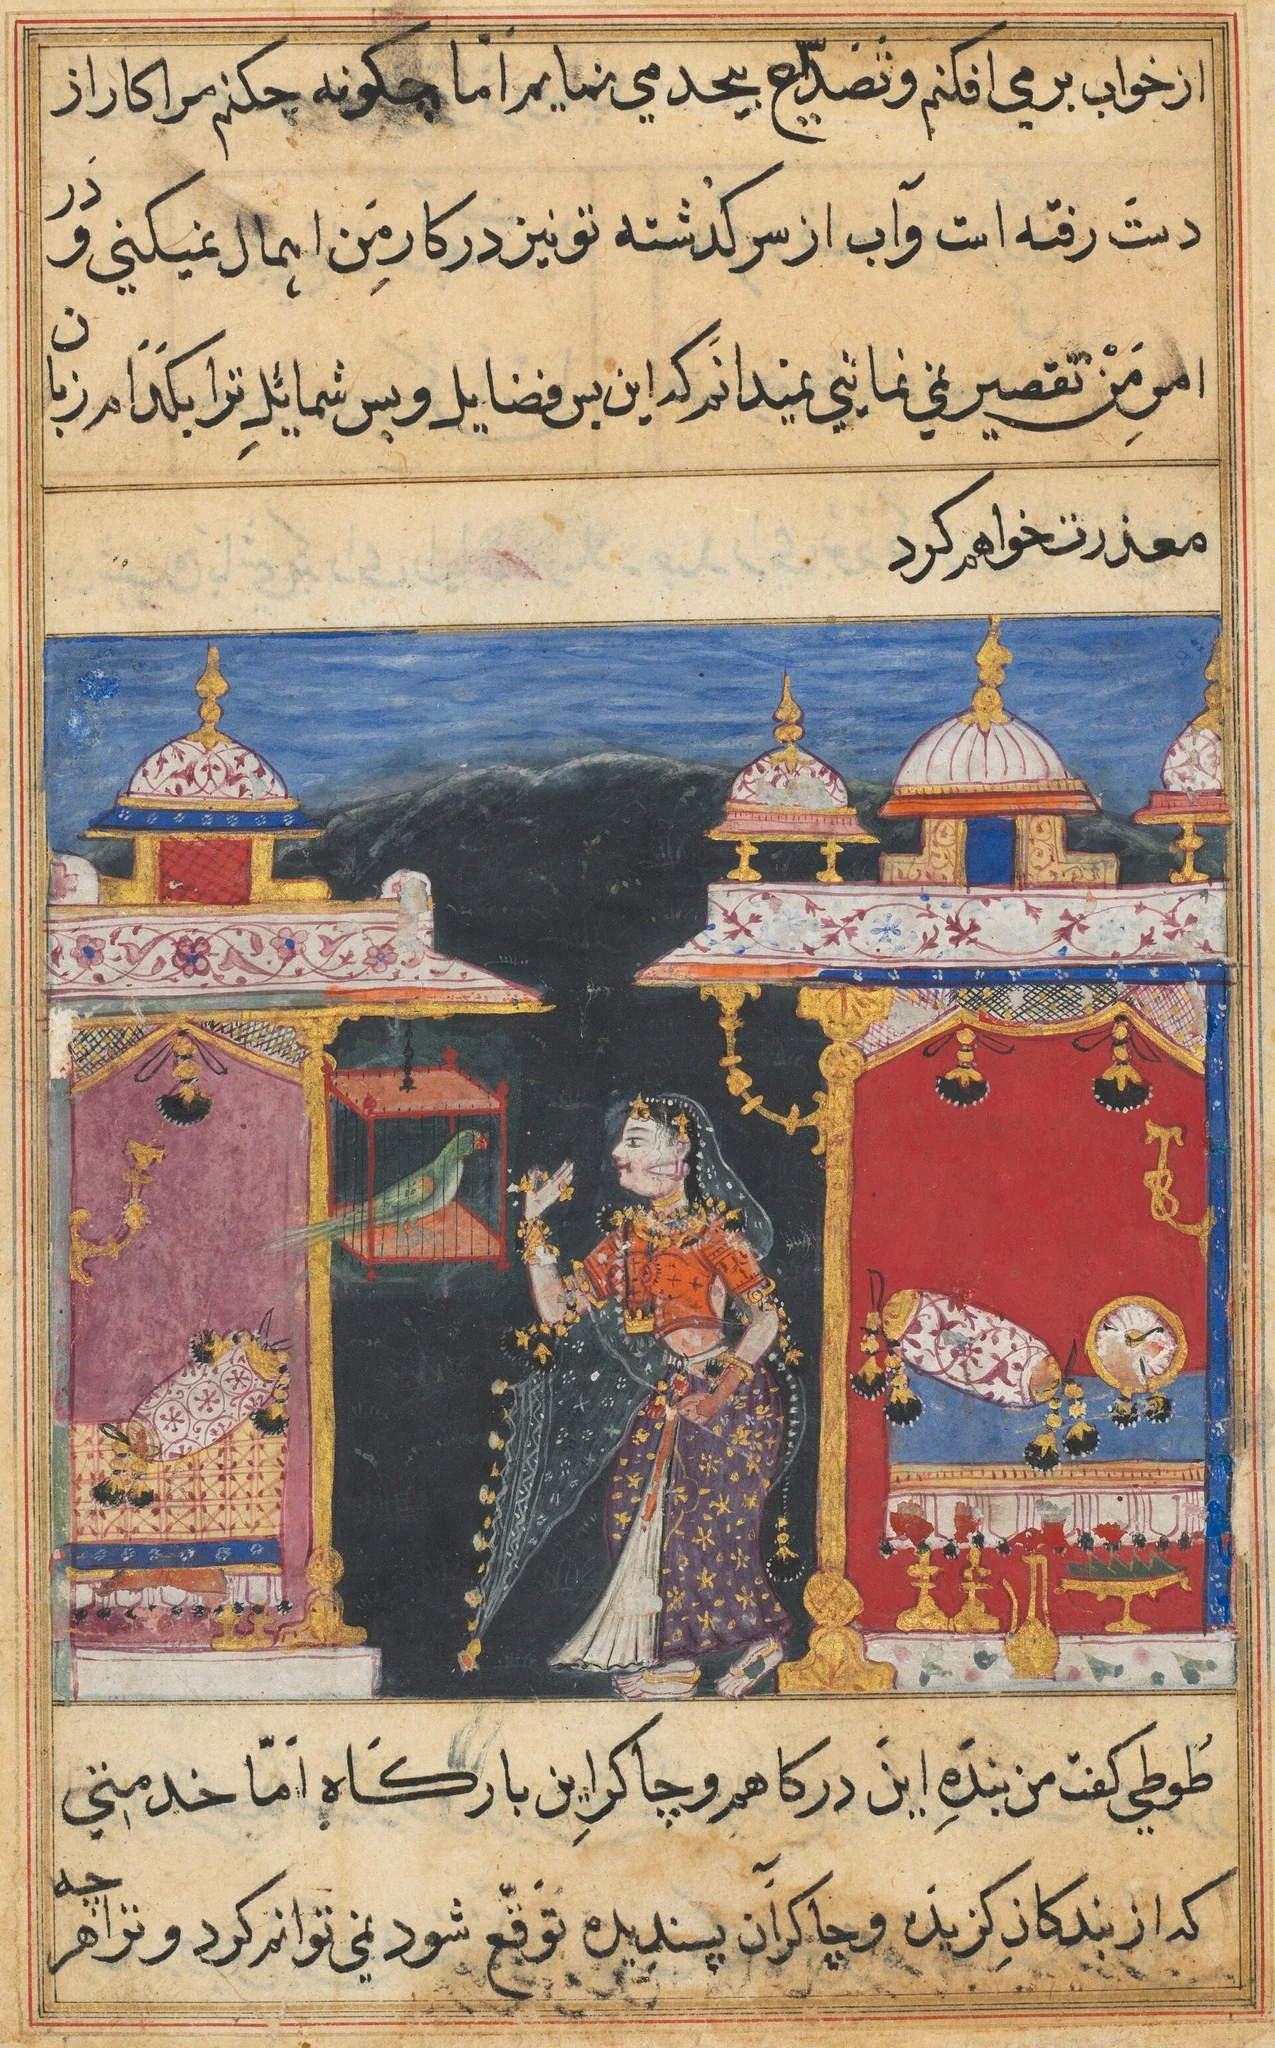 از خواب بر می افکنم و تصدّع بیحد می نمایم امّا چکونه چکنم مرا کار از
دست رفته است و آب از سر کذشته تو نیز در کار من اهمال نمیکنی و در
امر من تقصیر نمی نمائی نمیدانم که این بس فضایل و بس شمائل ترا بکدام زبان
معذرت خواهم کرد
طوطی کفت من بنده این درکاهم و چاکر این بارکاه امّا خدمتی
که از بندکان کزیده و چاکران پسندیده توقّع شود نمی توانم کرد و ترا هر چه